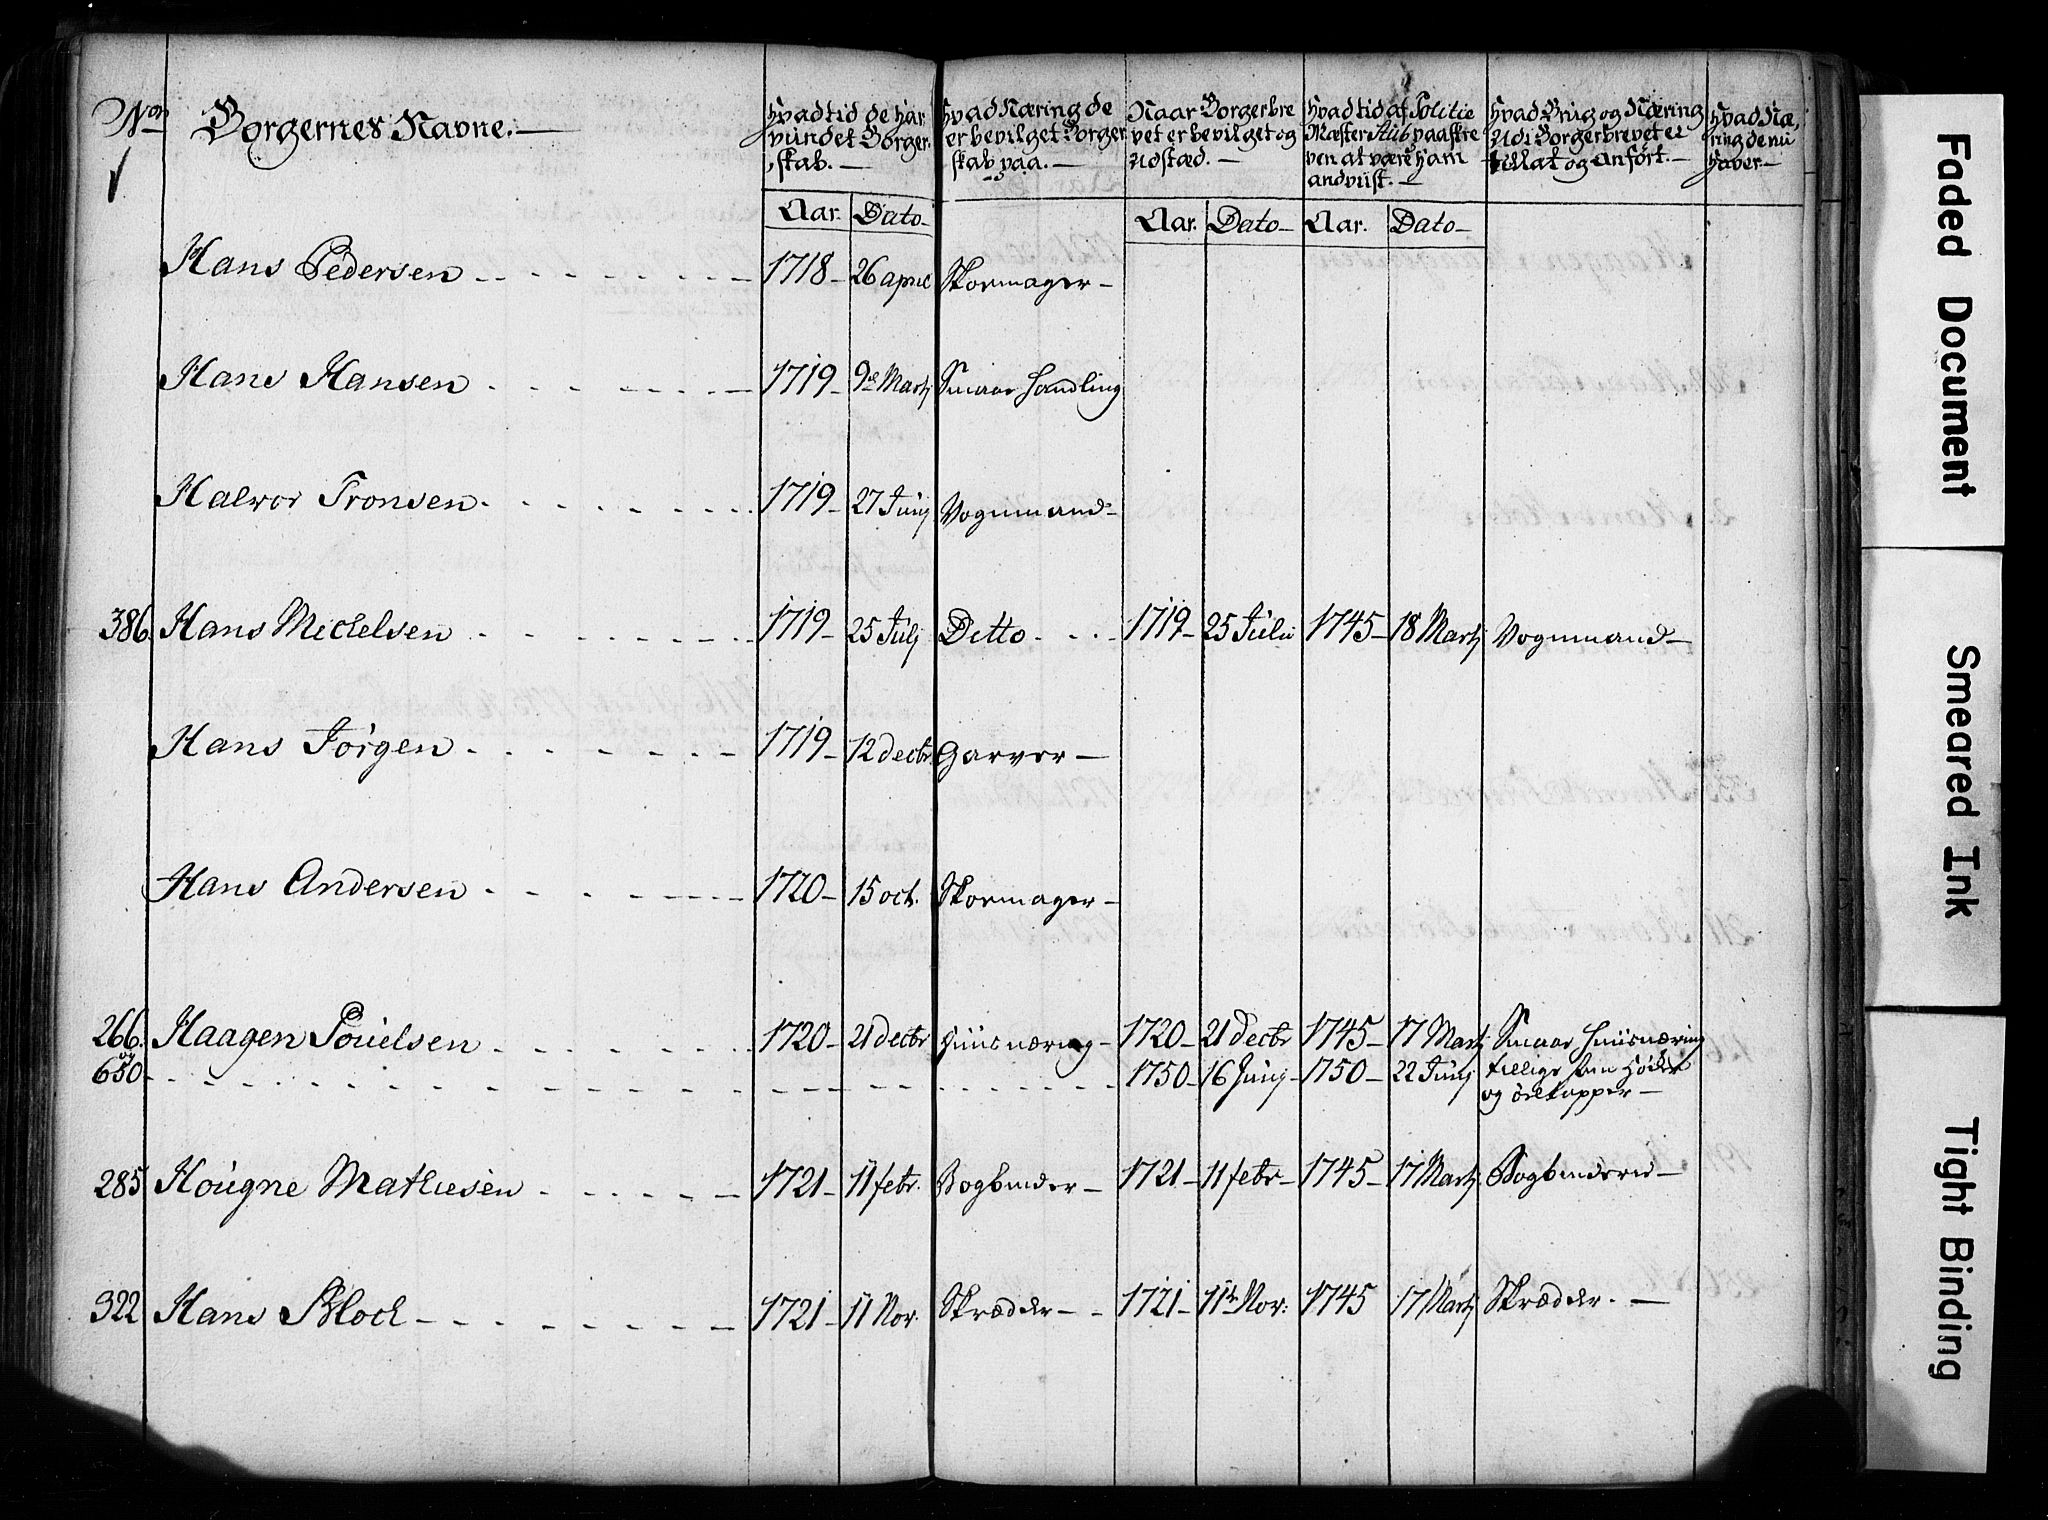 No
Borgernes Navne.
Hvad tid de har
vundet Borger
skab.
Aar. Dato
Hvad Næring de
er bevilget Borger
skab paa.
Naar Borgerbre
vet er bevilget og
udstæd.
Aar. Dato
Hvad tid af Politie
Mæster Stub paaskre
ven at være ham
andviist.
Aar. Dato
Hvad Brug og Næring
udi Borgerbrevet er
tillat og anført.
Hvad Næ,
ring de nu
haver
Hans Pedersen 1718 26 april Skoemager
Hans Hansen 1719 9de Martj Smaae Handling
Halvor Tronsen 1719 27 Junj Vognmand
386. Hans Michelsen 1719 25 Julj Ditto 1719 25 Julii 1745 18 Martj Vognmand
Hans Jörgen 1719 12 decbr Garver
Hans Andersen 1720 15 oct. Skoemager
266. Haagen Pouelsen 1720 21 decbr Huusnæring 1720 21 Decbr 1745 17 Martj Smaae Huusnæring
og
650 1750 16 Junj 1750 22 Junj tillige som Höker
og ölltapper
285 Hougne Mathiesen 1721 11 febr. Bogbinder 1721 11 febr 1745 17 Martj Bogbinderie
322 Hans Block 1721 11 Nov. Skræder 1721 11te Nov: 1745 17 Martj Skræder.
Faded Document
Smeared Ink
Tight Binding